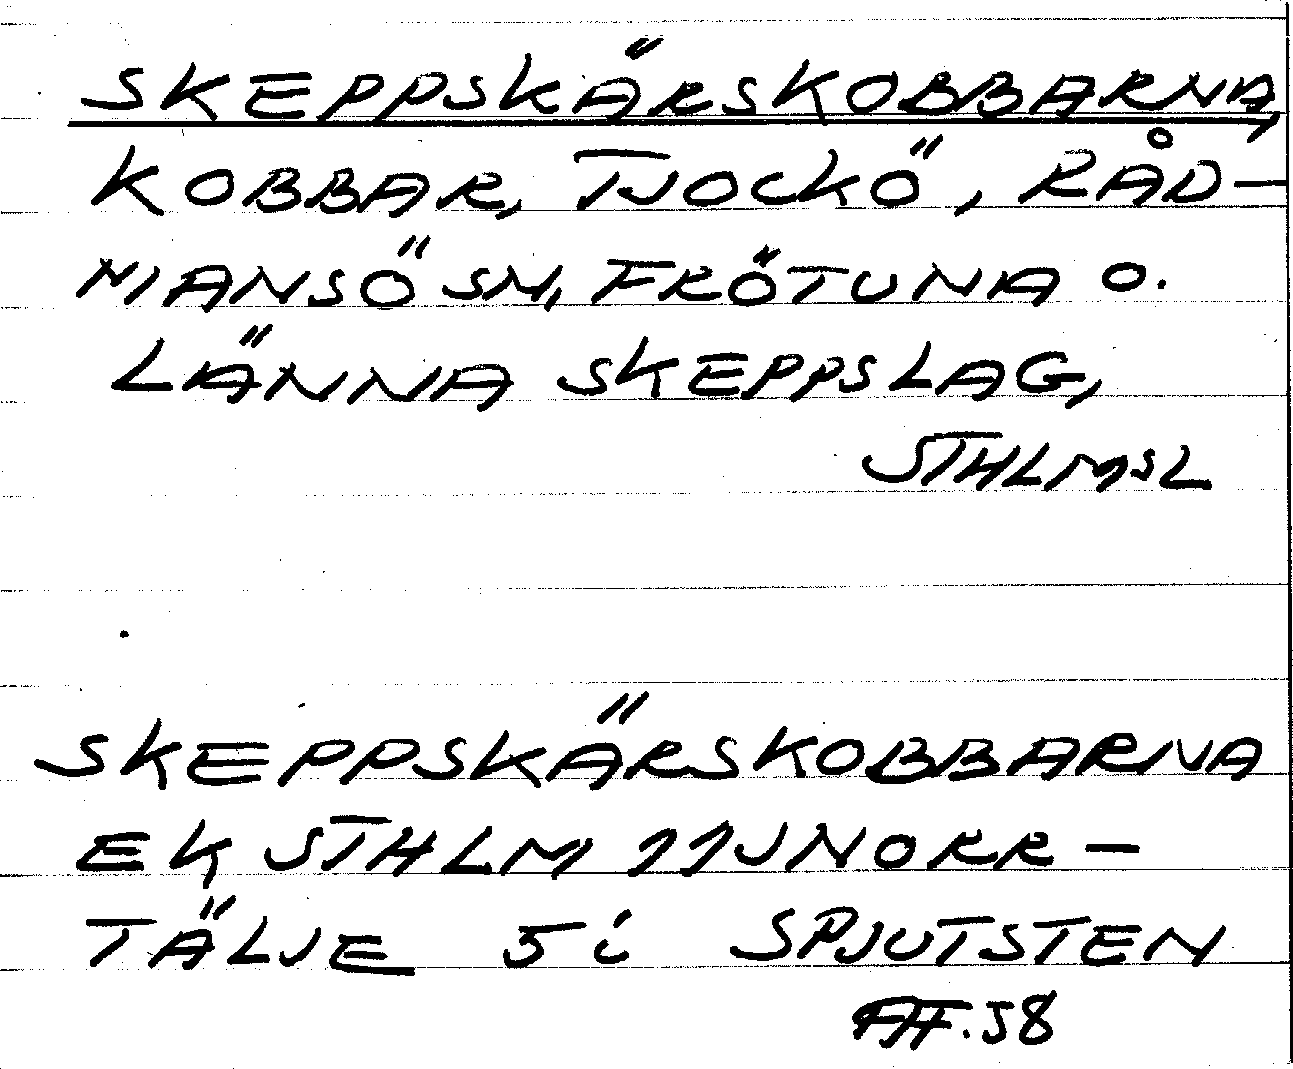 SKEPPSKÄRSKOBBARNA,
KOBBAR, TJOCKÖ, RÅD-
MANSÖ SN, FRÖTUNA O.
LÄNNA SKEPPSLAG,
STHLMSL
SKEPPSKÄRSKOBBARNA
EK STHLM 11J NORR-
TÄLJE 5 i SPJUTSTEN
58